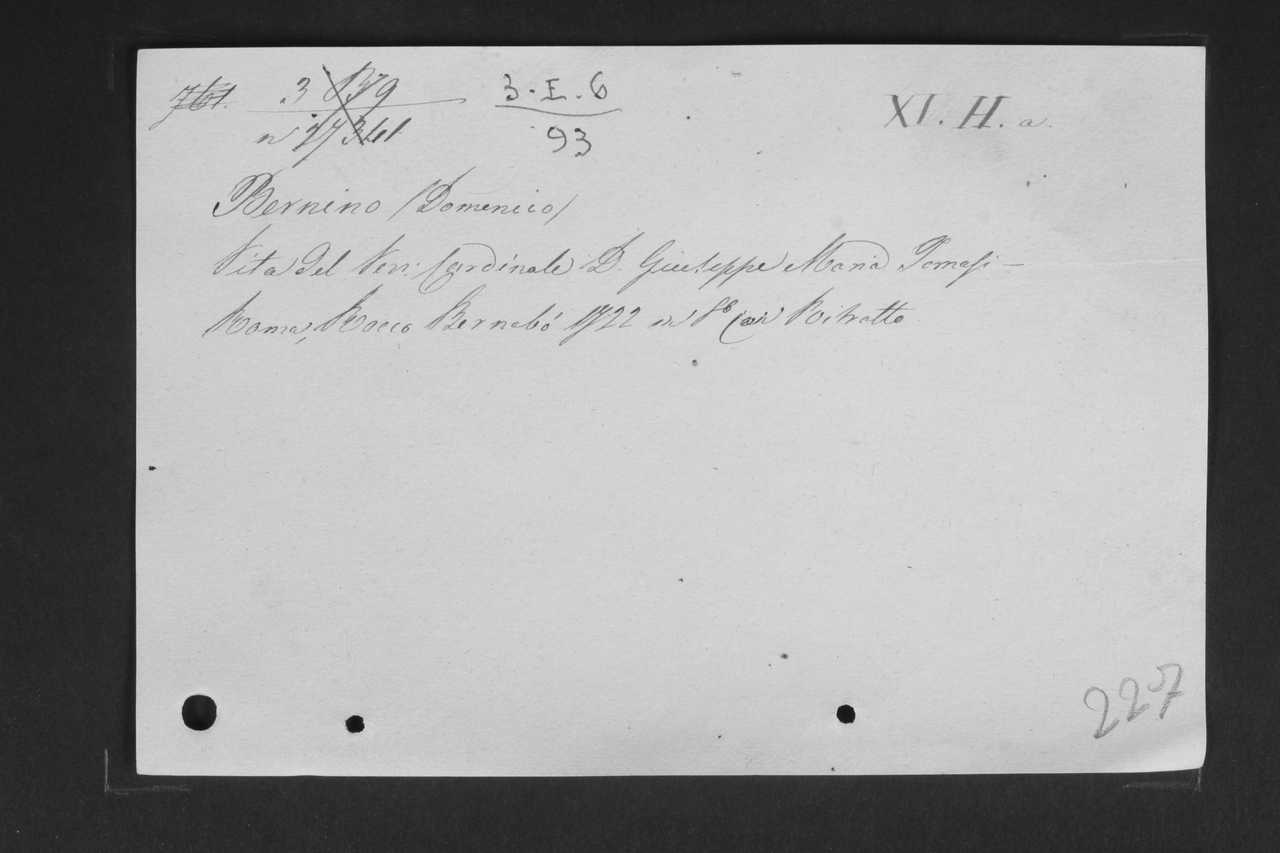 761. 3 B79 3.E.6 XI. H. a.
n° 17341 93
Bernino (Domenico)
Vita del Ven: Cardinale D. Giuseppe Maria Tomasi —
Roma, Rocco Bernabó 1722 in 8° con Ritratto.
2207